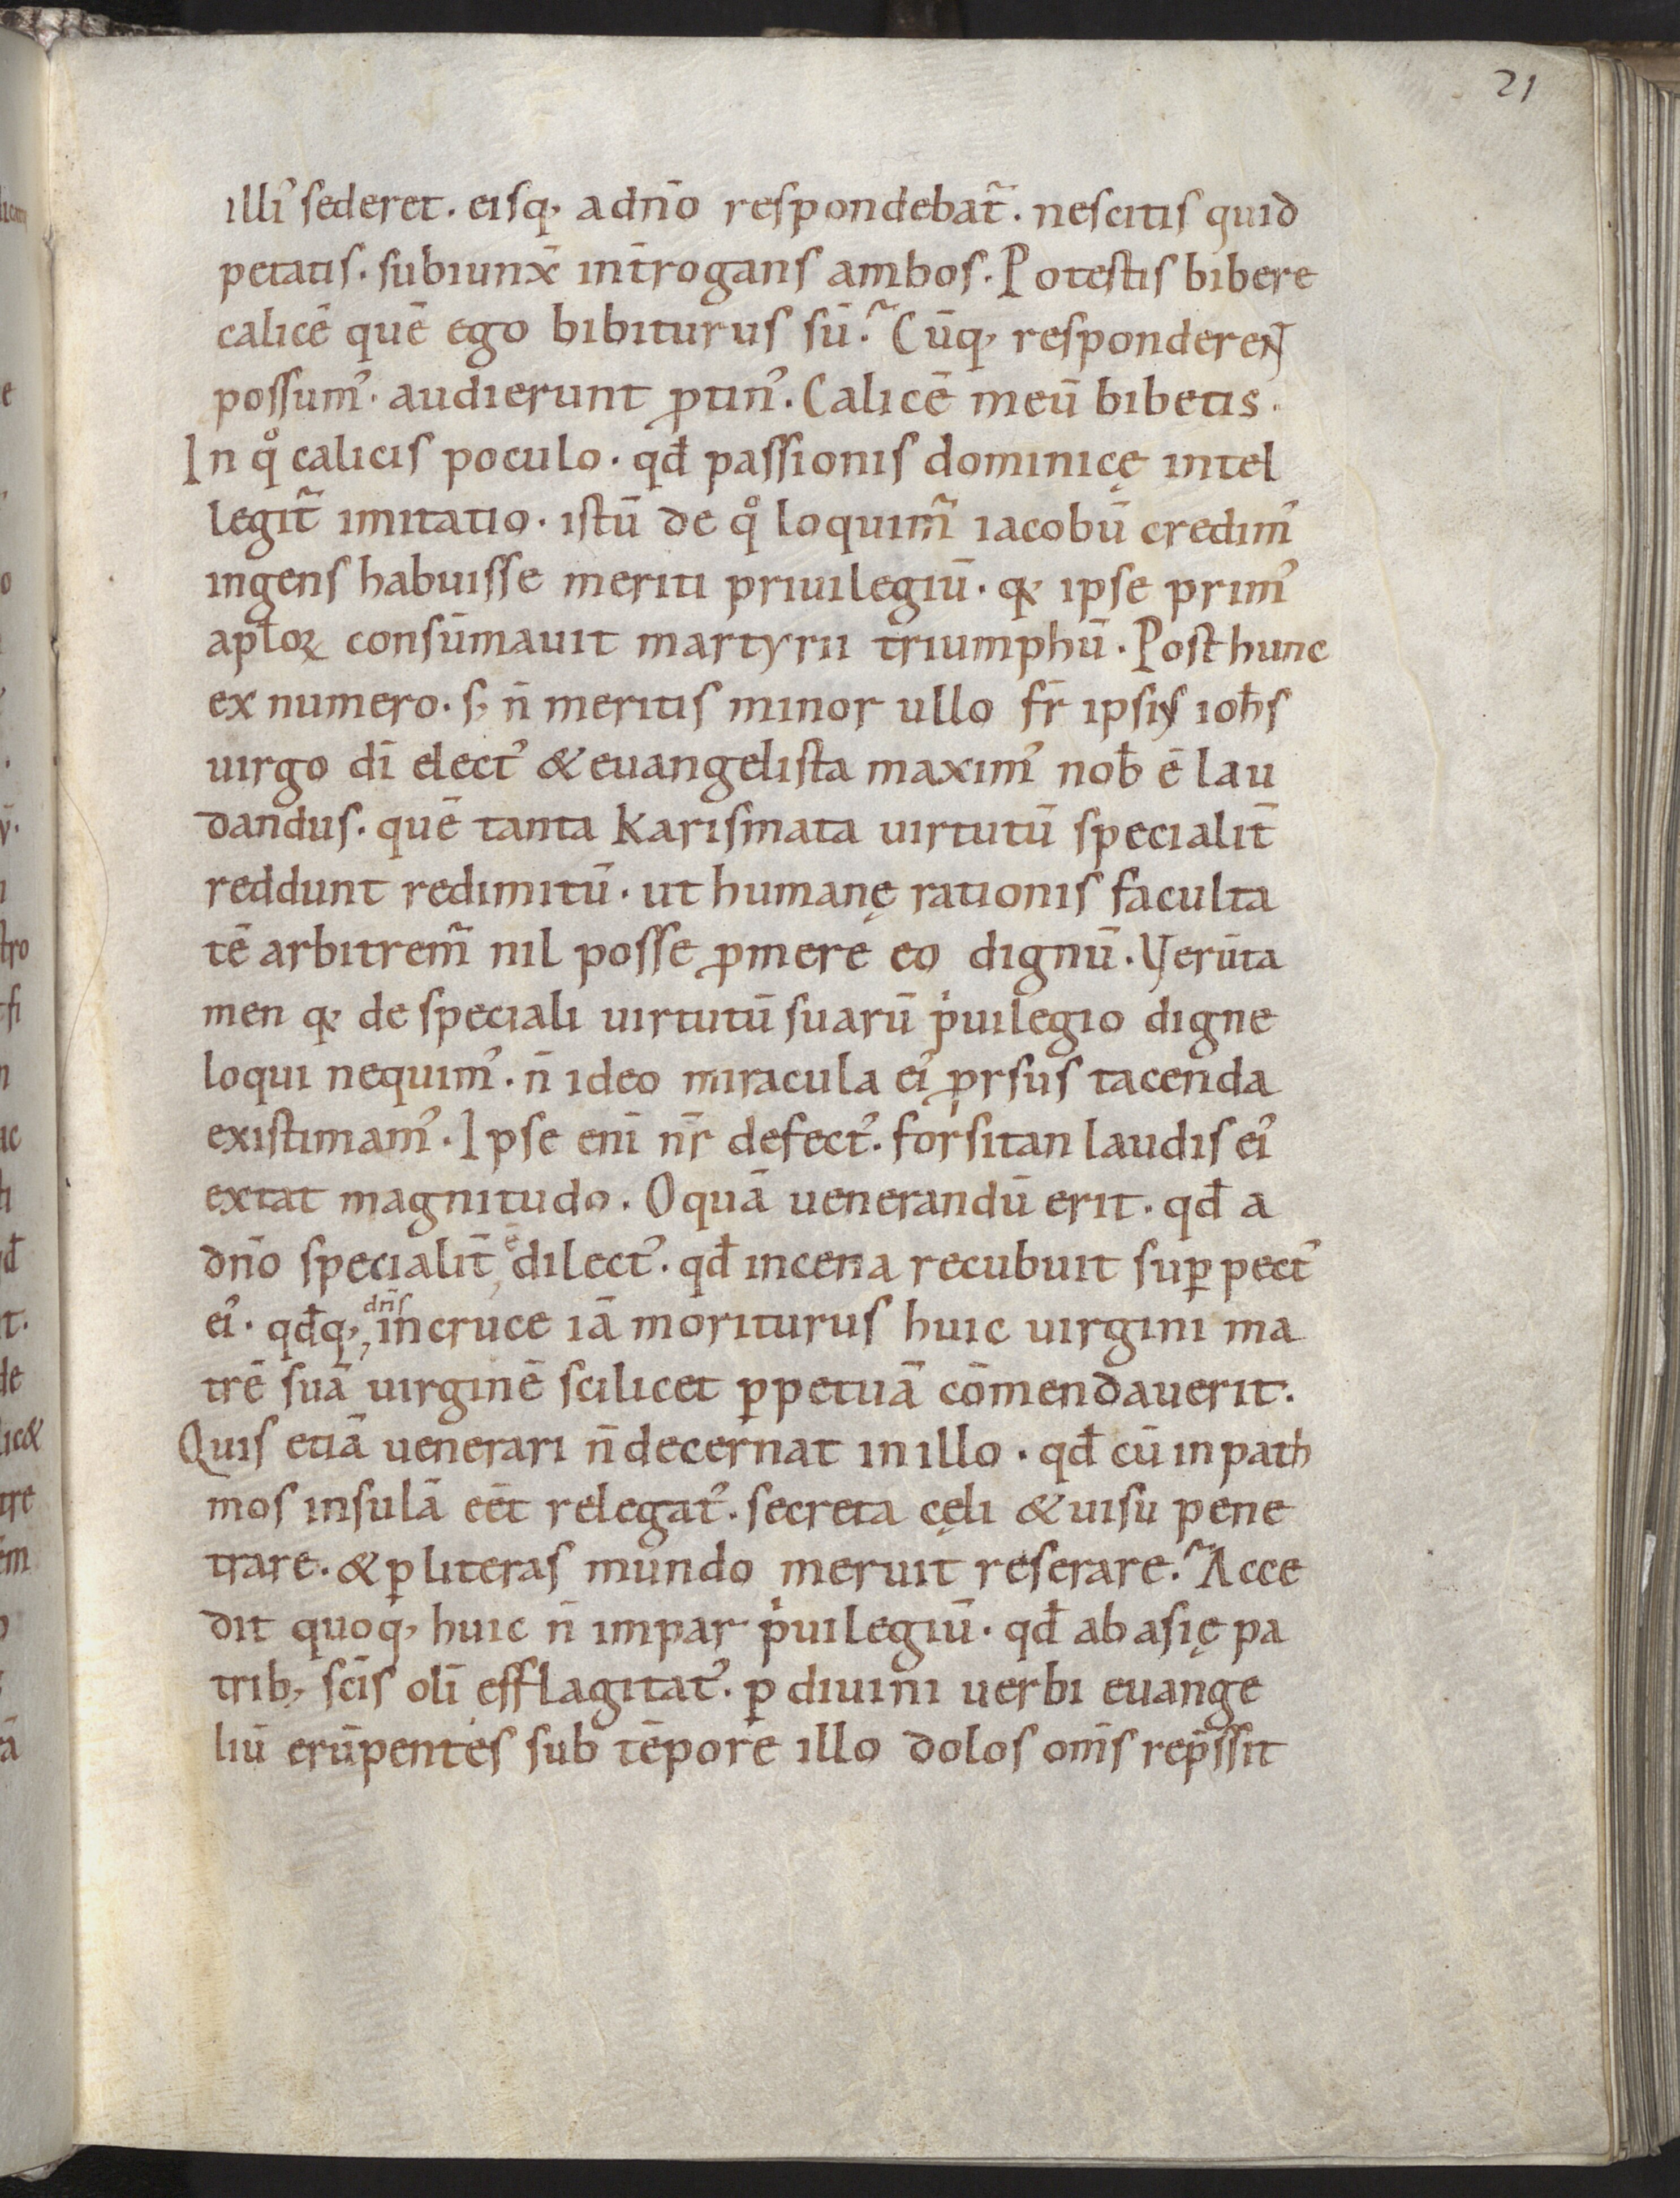 21
illiʼ sederet. eisq; adn̄o respondebat᷑. nescitis quid
petatis. subiunx̄ int̄rogans ambos. Potestis bibere
calicē quē ego bibiturus sū.᷑ Cūq; respondereɴᴛ
possumʼ. audierunt ꝓtinʼ. Calicē meū bibetis.
In qͦ calicis poculo. qđ passionis dominicę intel
legit᷑ imitatio. istū de qͦ loquim᷑ iacobū credimʼ
ingens habuisse meriti priuilegiū. qꝫ ipse primʼ
apłoꝝ consūmauit martyrii triumphū. Post hunc
ex numero. s; n̄ meritis minor ullo fr̄ ipsiꝰ ioħs
uirgo dī electʼ & euangelista maximʼ nob̄ ē lau
dandus. quē tanta karismata uirtutū specialit̄
reddunt redimitū. ut humanę rationis faculta
tē arbitrem᷑ nil posse ꝓmere eo dignū. Verūta
men qꝫ de speciali uirtutū suarū pͥuilegio digne
loqui nequimʼ. n̄ ideo miracula eiʼ ꝓrsus tacenda
existimamʼ. Ipse enī nr̄ defectʼ. forsitan laudis eiʼ
extat magnitudo. O quā uenerandū erit. qđ a
dn̄o specialit̄ ē dilectʼ. qđ in cena recubuit suꝑ pectʼ
eiʼ. qđq; dn̄s in cruce iā moriturus huic uirgini ma
trē suā uirginē scilicet ꝑpetuā cōmendauerit.
Quis etiā uenerari n̄ decernat in illo. qđ cū in path
mos insulā eēt relegatʼ. secreta cęli & uisu pene
trare. & ꝑ literas mundo meruit reserare.᷑ Acce
dit quoq; huic n̄ impar pͥuilegiū. qđ ab asię pa
trib; sc̄is olī efflagitatʼ. ꝑ diuini uerbi euange
liū erūpentes sub tēpore illo dolos om̄s rep̄ssit